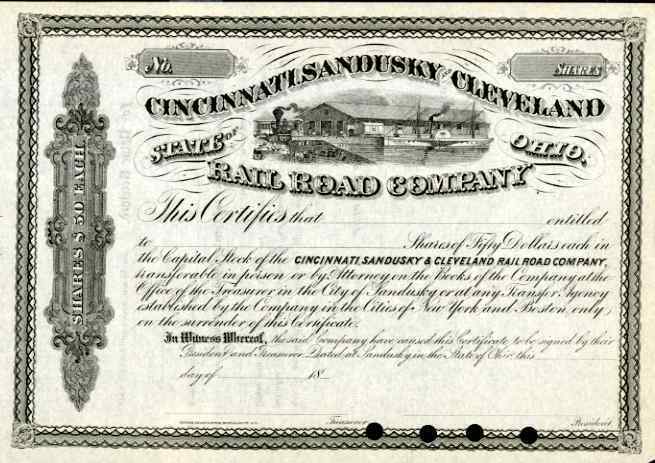 No.
SHARES
CINCINNATI, SANDUSKY AND CLEVELAND
STATE OF OHIO.
RAIL ROAD COMPANY
SHARES $50 EACH
This Certifies that entitled
to Shares of Fifty Dollars each in
the Capital Stock of the CINCINNATI SANDUSKY & CLEVELAND RAIL ROAD COMPANY,
transferable in person or by Attorney on the Books of the Company at the
Office of the Treasurer in the City of Sandusky or at any Transfer Agency
established by the Company in the Cities of New York and Boston, only
on the surrender of this Certificate.
In Witness Whereof, the said Company have caused this Certificate to be signed by their
President and Treasurer. Dated at Sandusky in the State of Ohio this
day of 18
Treasurer
President